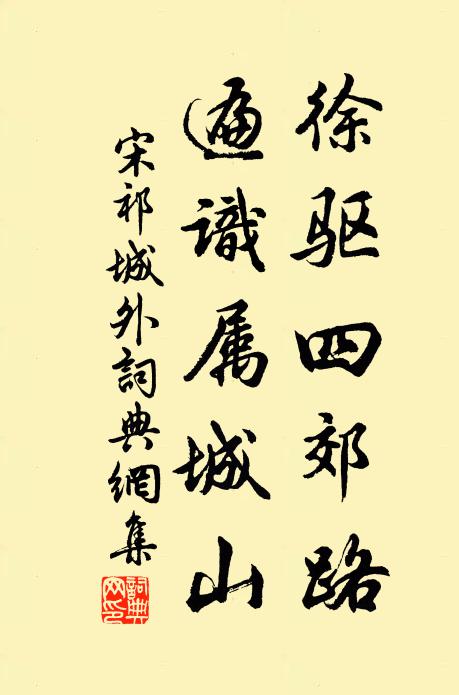 徐驱四郊路
遍識属城山
宋祁城外詞典網集
詞典網印